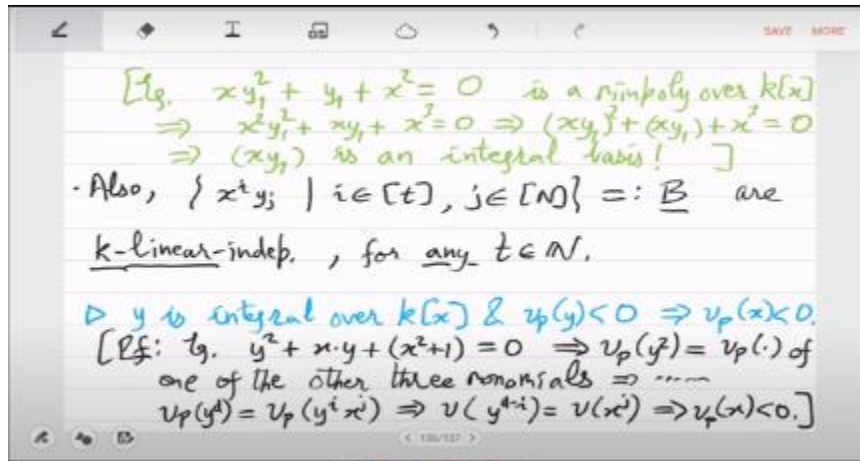 SAVE MORE
[Eg. xy₁² + y₁ + x² = 0 is a minpoly over k[x]
⇒ x²y₁² + xy₁ + x³ = 0 ⇒ (xy₁)² + (xy₁) + x³ = 0
⇒ (xy₁) is an integral basis! ]
· Also, { xⁱyⱼ | i∈[t], j∈[N]} =: B are
k-linear-indep. , for any t∈ℕ.
▷ y is integral over k[x] & v_p(y)<0 ⇒ v_p(x)<0.
[Pf: Eg. y² + x·y + (x²+1) = 0 ⇒ v_p(y²) = v_p(·) of
one of the other three monomials ⇒ ·····
v_p(y^d) = v_p(yⁱxʲ) ⇒ v(y^{d-i}) = v(xʲ) ⇒ v_p(x)<0.]
< 136/137 >